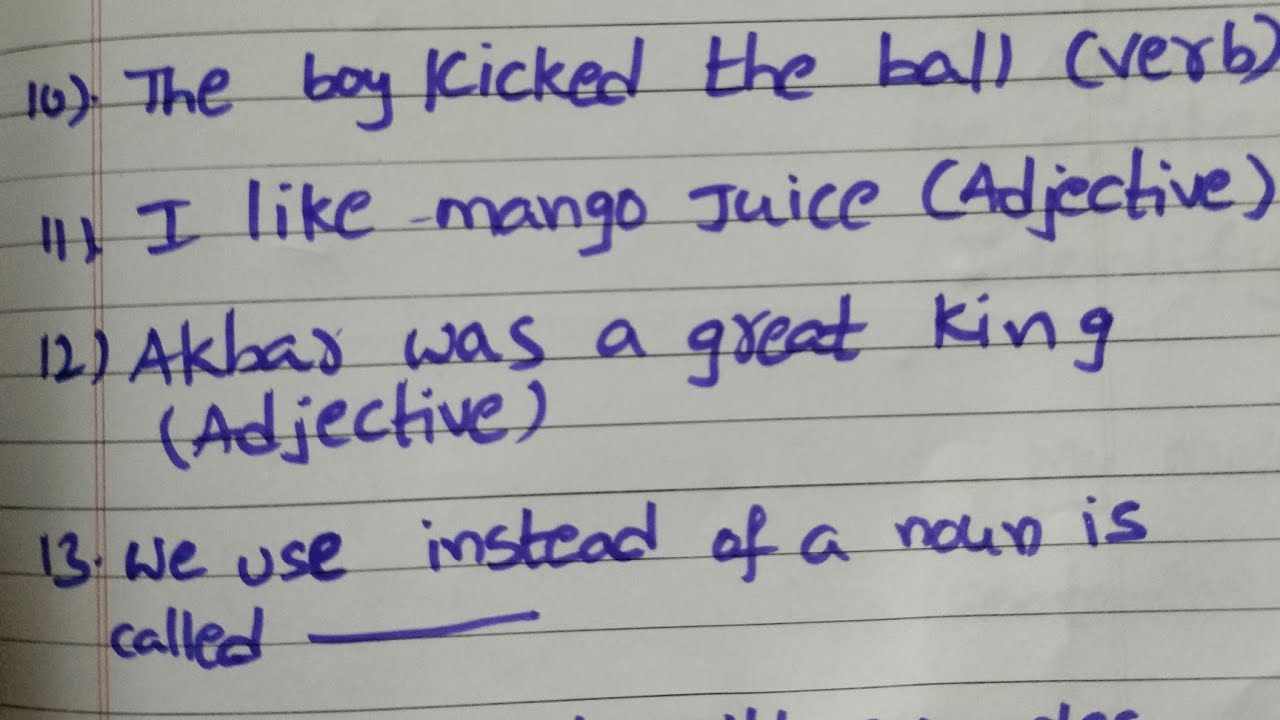 10). The boy kicked the ball (verb)
11) I like mango Juice (Adjective)
12) Akbar was a great king
(Adjective)
13. We use instead of a noun is
called ———